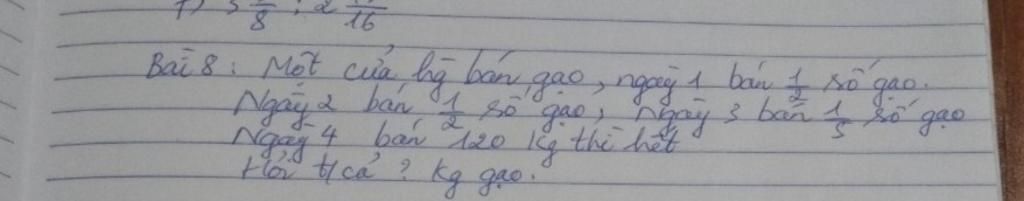 f) 3 /8 : 2 /16
Bài 8 : Một cửa hg bán gạo, ngày 1 bán 1/2 số gạo.
Ngày 2 bán 1/2 số gạo, Ngày 3 bán 1/5 số gạo
Ngày 4 bán 120 kg thì hết
Hỏi t/cả ? kg gạo.